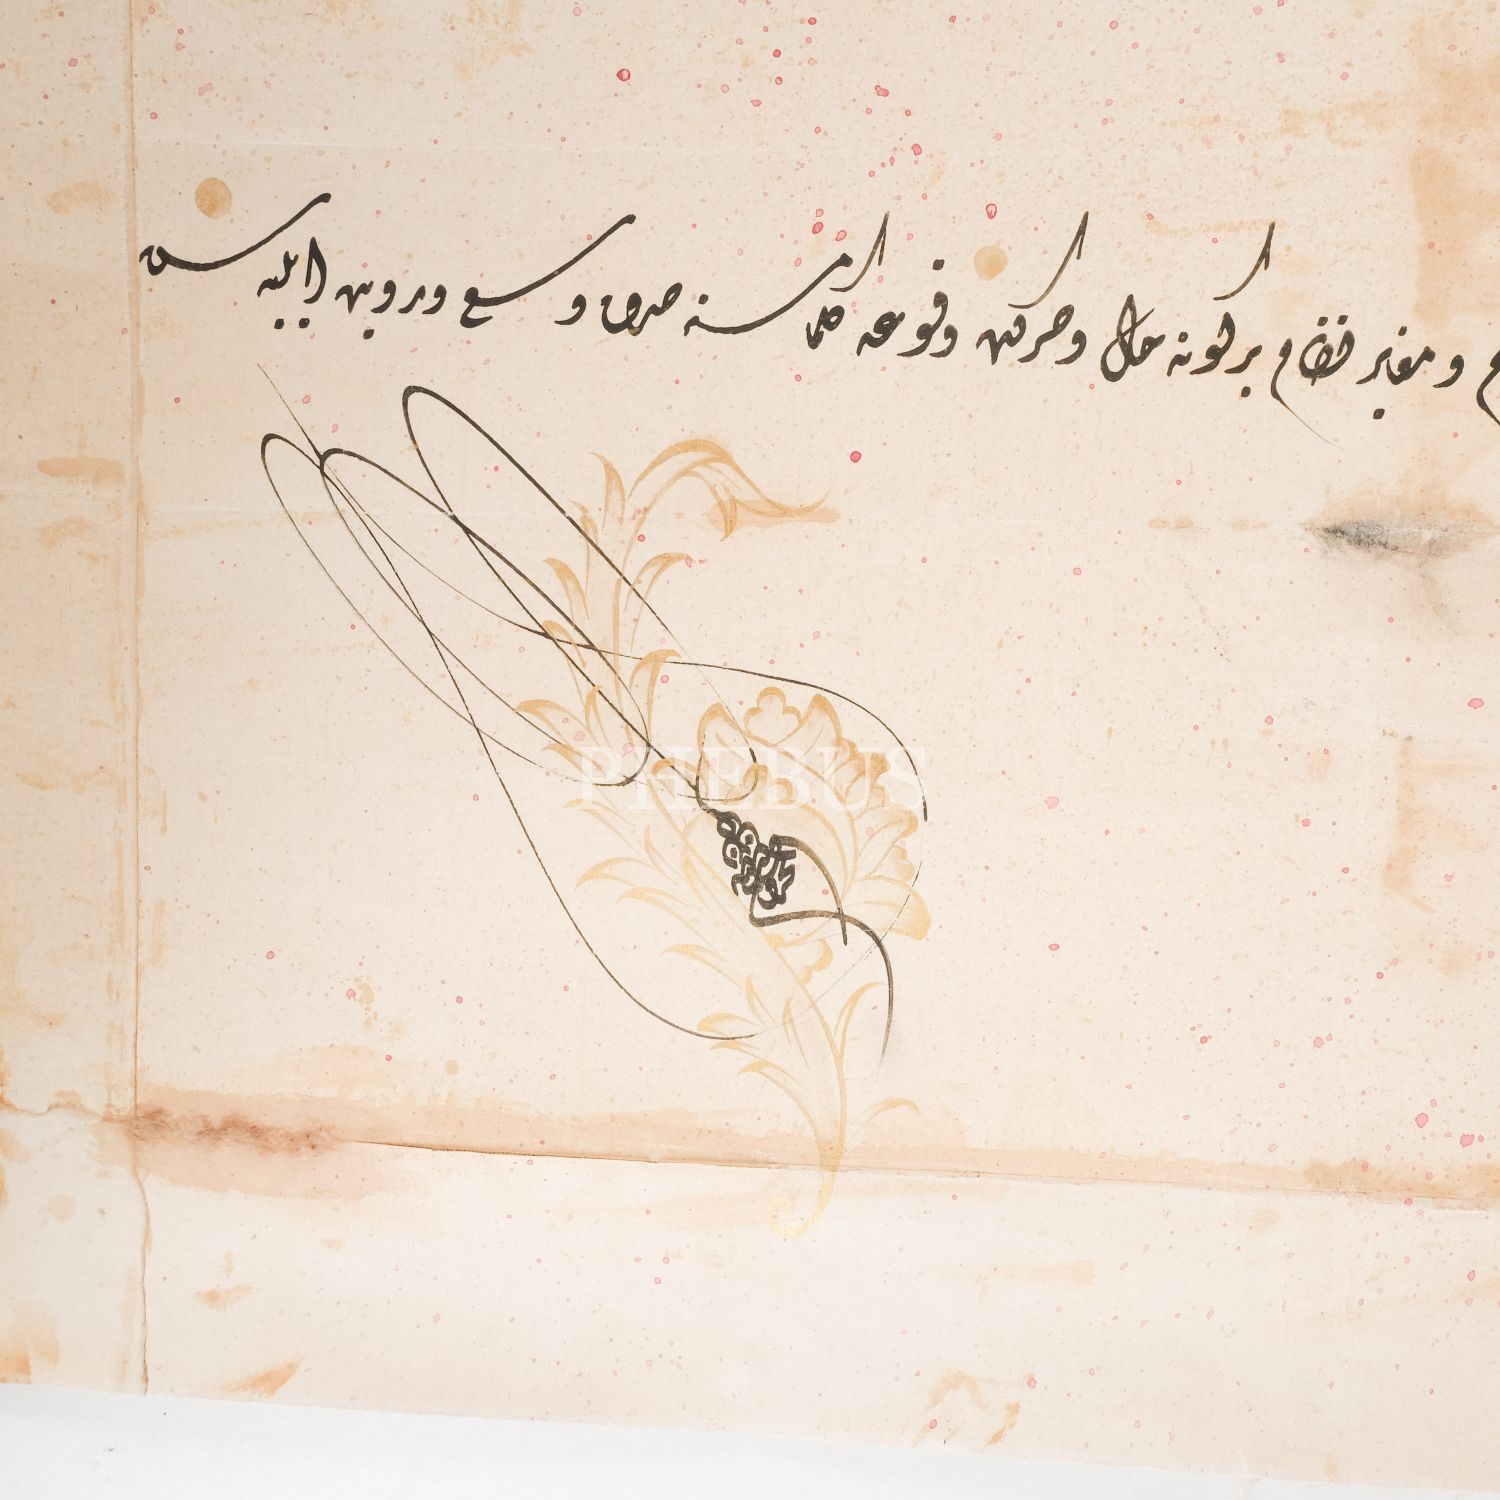 و مغایر نظام برکونه حال و حرکت وقوعه کلمامسنه صرف وسع و رویت ایلیه سن
PHEBUS